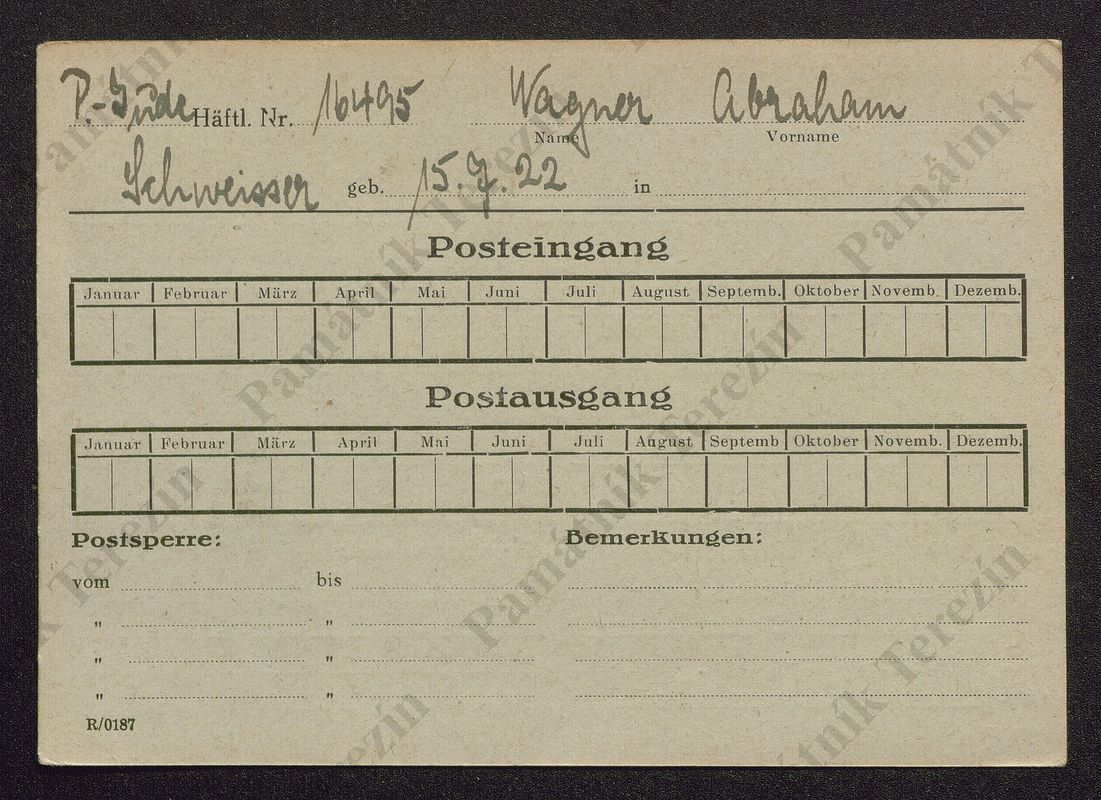 P.-Jude Häftl. Nr. 16495 Wagner Abraham
Name Vorname
Schweisser geb. 15.7.22 in
Posteingang
Januar Februar März April Mai Juni Juli August Septemb. Oktober Novemb. Dezemb.
Postausgang
Januar Februar März April Mai Juni Juli August Septemb Oktober Novemb. Dezemb.
Postsperre: Bemerkungen:
vom bis
" "
" "
" "
R/0187
Památník Terezín